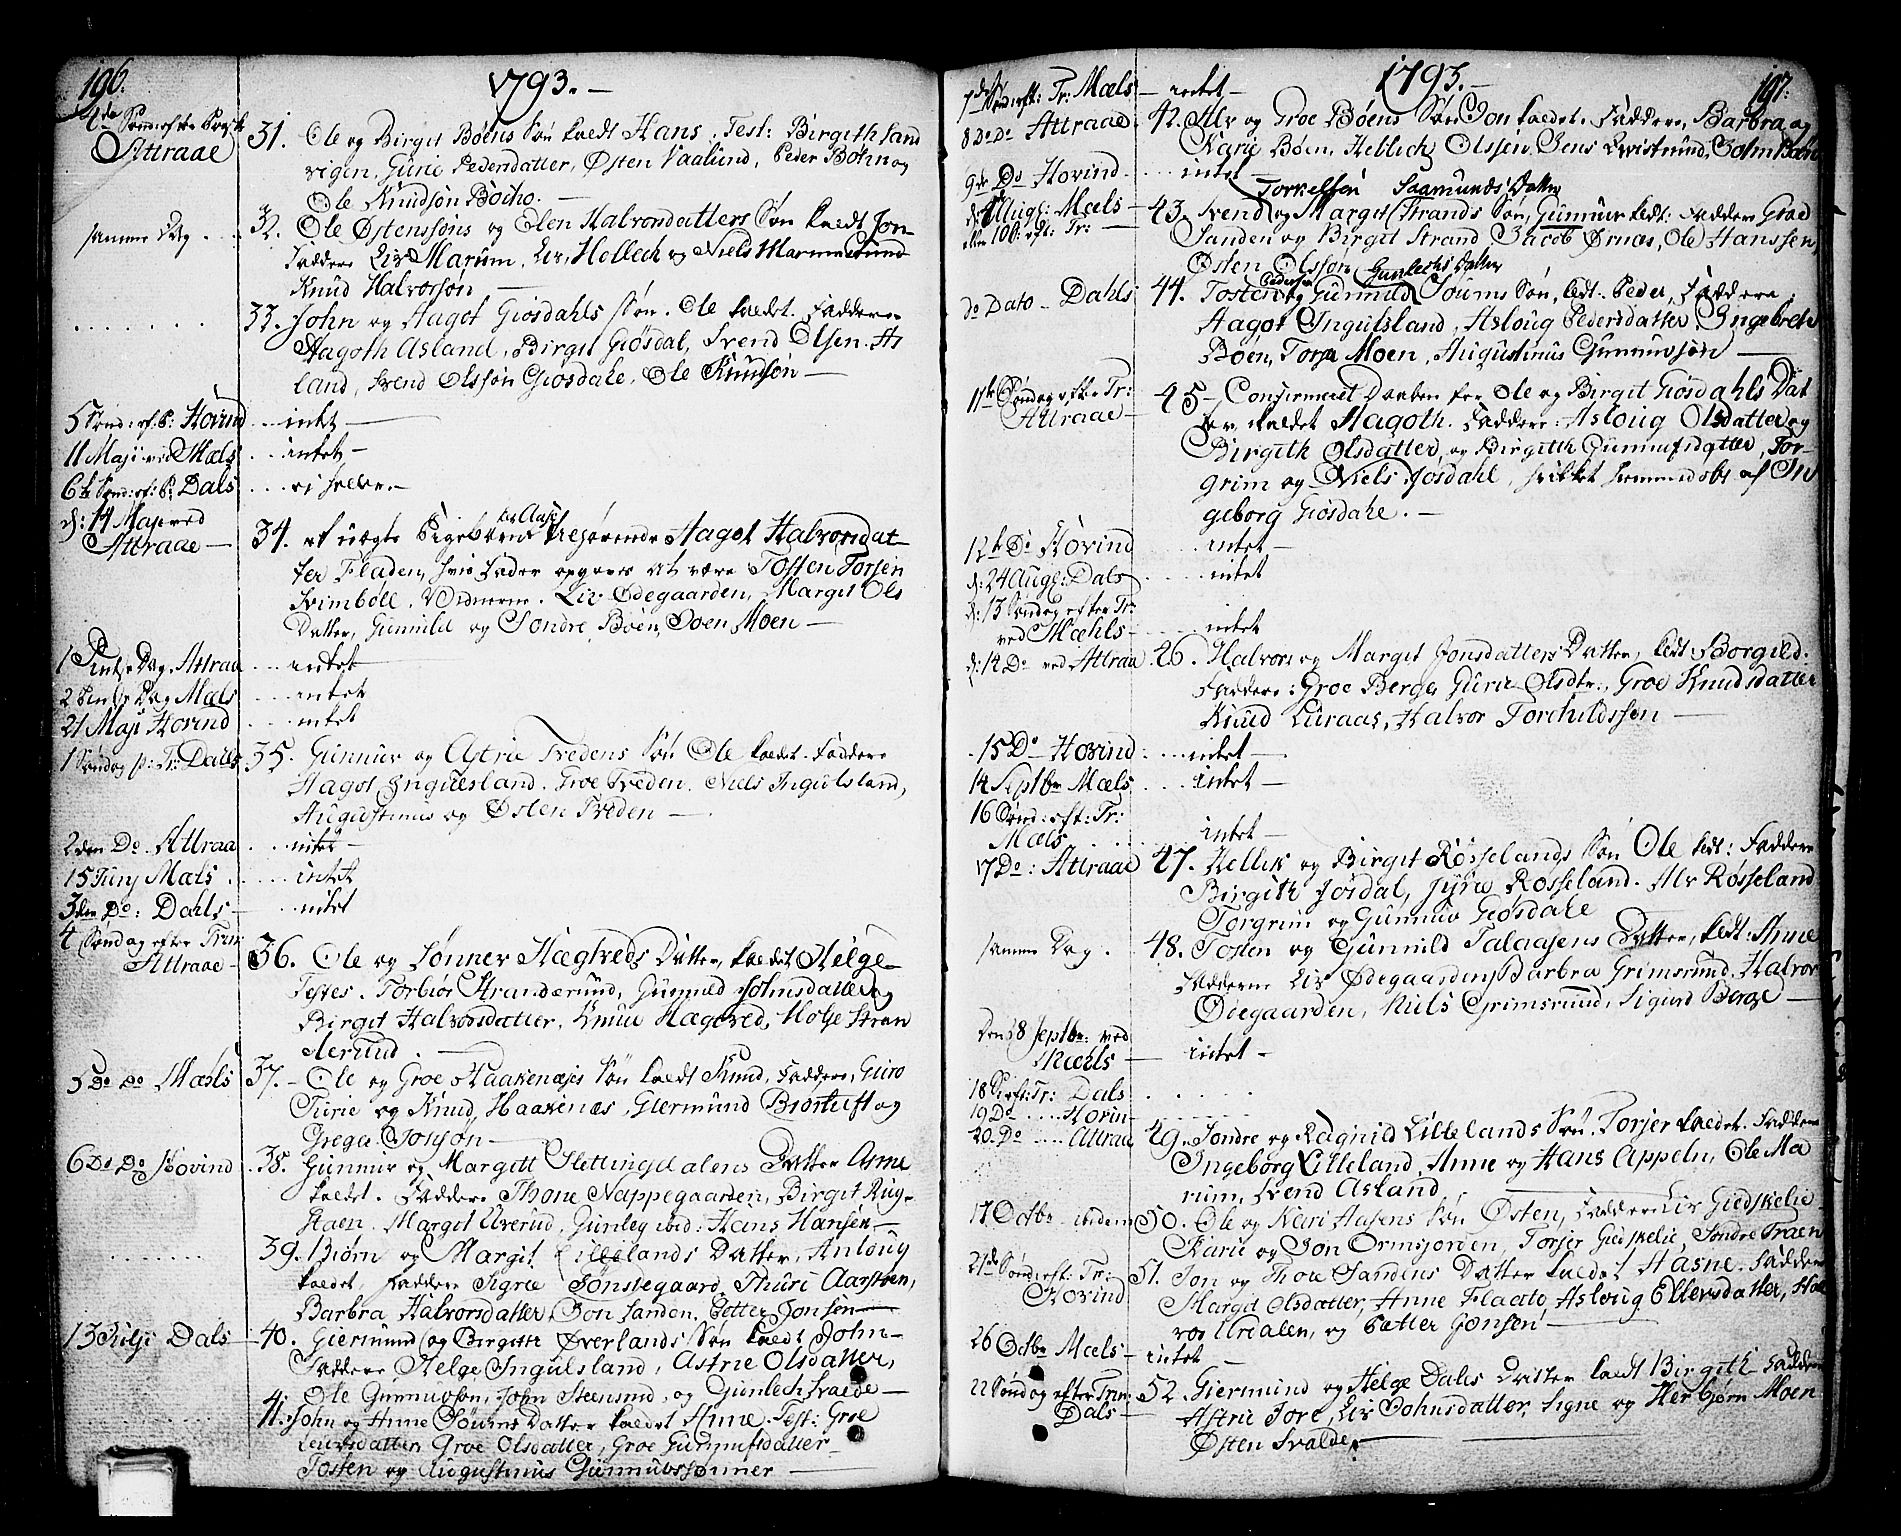 196.
1793.–
4de Sønd: efter Paask
Attraae
31. Ole og Birgit Bøens Søn kaldt Hans. Test: Birgith Sand
vigen, Gurie Pedersdatter, Østen Vaalund, Peder Bøhn og
Ole Knudsøn Böeho.
samme Dag
32. Ole Østenssøns og Elen Halvorsdatters Søn kaldt Jon–
Faddere Liv Marum, Liv Hellech og Niels Marumslund
Knud Halvorsøn
33. John og Aagot Giøsdahls Søn. Ole kaldet. Faddere
Aagoth Asland, Birgit Giøsdal, Svend Olsen As
land, Svend Olssøn Giøsdahl, Ole Knudsøn
5 Sønd: ef: P: Hovind
intet
11 Maji ved Mæls
intet
6te Sønd: ef: P: Dals
ei heller
d: 14 Maji ved
Attraae
34. et uægte Pigebarn Liv Aase tilhørende Aagot Halvorsdat
ter Fladen, hvis Fader opgaves at være Tosten Torsen
Svimböll. Vidnerne. Liv Ødegaarden, Margit Ols
Datter, Gunnild og Sondre Böen, Soen Moen
1 Pintse Dag Attraa
intet
2 Pintse Dag Mæls
intet
21 Maji Hovind
intet
1 Søndag p: Tr: Dahls
35. Gunnuv og Astrie Tredens Søn Ole kaldet. Faddere
Aagot Ingulsland, Groe Treden, Niels Ingulsland,
Augustinus og Østen Treden
2den Do Attraa
intet
15 Junj Mæls
intet
3den Do: Dahls
intet
4 Søndag efter Trin
Attraae
36. Ole og Sønner Hægtveds Datter, kaldet Helge
Testes. Torbiør Stranderund, Gunnild Johnsdatter og
Birgit Halvorsdatter, Knud Hægtved, Holje Stran
derund.
5 Do Do Mæhls
37. Ole og Groe Haakenæses Søn kaldt Knud. Faddere, Guro
Turie og Knud, Haakenæs, Giermund Biørtuft og
Gregar Jonsøn
6 Do Do Hovind
38. Gunnuv og Margitt Flettingdalens Datter Asne
kaldet. Faddere Thone Nappegaarden, Birgit Rug-
staen. Margit Uverud, Gunleg ibid: Hans Hansen
39. Biørn og Margit Lillelands Datter, Anloug
kaldet, Faddere Sigrie Tønstegaard, Thuri Aarstoen,
Barbra Halvorsdatter, Jon Sanden, Petter Jonsen
13 Julji Dals
40. Giermund og Birgitte Øverlands Søn kaldt John
Faddere Helge Ingulsland, Astrie Olsdatter,
Ole Gunnuvsøn, John Steensrud, og Gunlech Svalde
41. John og Anne Soumsdatter kaldet Anne. Test: Groe
Leivsdatter, Groe Olsdatter, Groe Gunnufsdatter
Tosten og Augustinus Gunnuvssønner
197.
1793.–
7de Sønd: eft: Tr: Mæls
intet
8 Do Do Attraae
42. Alv og Groe Bøens Søn Jon kaldet. Faddere, Barbra og
Karie Böen, Hellech Olssen, Jens Qvistrund, Colm Bøen
9de Do Hovind
intet
d: Augl: Mæls
eller 10de eft: Tr:
Torkelsøn Saamunds Datter
43. Svend og Margit Strands Søn, Gunnuv kldt: Faddere Groe
Sanden og Birgit Strand, Jacob Ørnæs, Ole Hanssen,
Østen Olssøn
do Dato Dahls
Pedersøn Gunlechs Datter
44. Tosten og Gunnild Soums Søn, kldt: Peder, Faddere
Aagot Ingulsland, Asloug Pedersdatter, Ingebret
Böen, Torje Moen, Augustinus Gunnuvsøn
11te Søndag efter Tr:
Attraae
45 Confirmeret Daaben for Ole og Birgit Giøsdahls Dat
ter kaldet Aagoth. Faddere: Asloug Olsdatter og
Birgith Olsdatter, og Birgitth Gunnufsdatter, Tor-
grim og Niels Josdahl, hvilket hiemmedøbt af In
geborg Giøsdahl.
12te Do Hovind
intet
d: 24 Augl: Dals
intet
d: 13 Søndag efter Tr:
ved Mæhls
intet
d: 14 Do ved Attraa
46. Halvor og Margit Jonsdatters Datter, kldt: Borgild.
Faddere: Groe Berge, Gurie Olsdtr:, Groe Knudsdatter
Knud Luraas, Halvor Torchildssøn
15 Do Hovind
intet
14 Septbr Mæls
intet
16 Sønd: eft: Tr:
Mæls
intet
17 Do: Attraae
47. Hellik og Birgit Røsselands Søn Ole kldt: Faddere
Birgith Josdal, Jyra Rosseland. Alv Røsseland
Torgrim og Gunnuv Giøsdahl
samme Dag.
48. Tosten og Gunnild Talaasens Datter, kldt: Anne
Fadderne Liv Ødegaarden, Barbra Grimsrund, Halvor
Ödegaarden, Niels Grimsrund, Sigurd Berge
Den 18 Septbr: ved
Mæhls
intet
18 S: eft: Tr: Dals
19 Do Hovin
20 Do Attraa
49. Sondre og Ragnild Lillelands Søn. Torjer kaldet. Faddere
Ingeborg Lilleland, Anne og Hans Appeln, Ole Ma
rum, Svend Asland
17 Octbr ibidem
50. Ole og Kari Aasens Søn Østen, Faddere Liv Giedskelie
Karie og Jon Ormsjorden, Torjer Giedskelie, Sondre Traen
21de Sønd: eft: Tr:
Hovind
51. Jon og Thore Sandens Datter kaldet Aasne. Faddere
Margit Olsdatter, Anne Flaato, Asloug Ellevsdatter, Hal
vor Uvdalen, og Pætter Jonsen
26 Octbr Mæls
intet
22 Søndag efter Trin
Dals
52. Giermund og Helge Dales Datter kaldt Birgith Faddere
Astrie Tore, Liv Johnsdatter, Signe og Herbjørn Moen
Østen Svalde